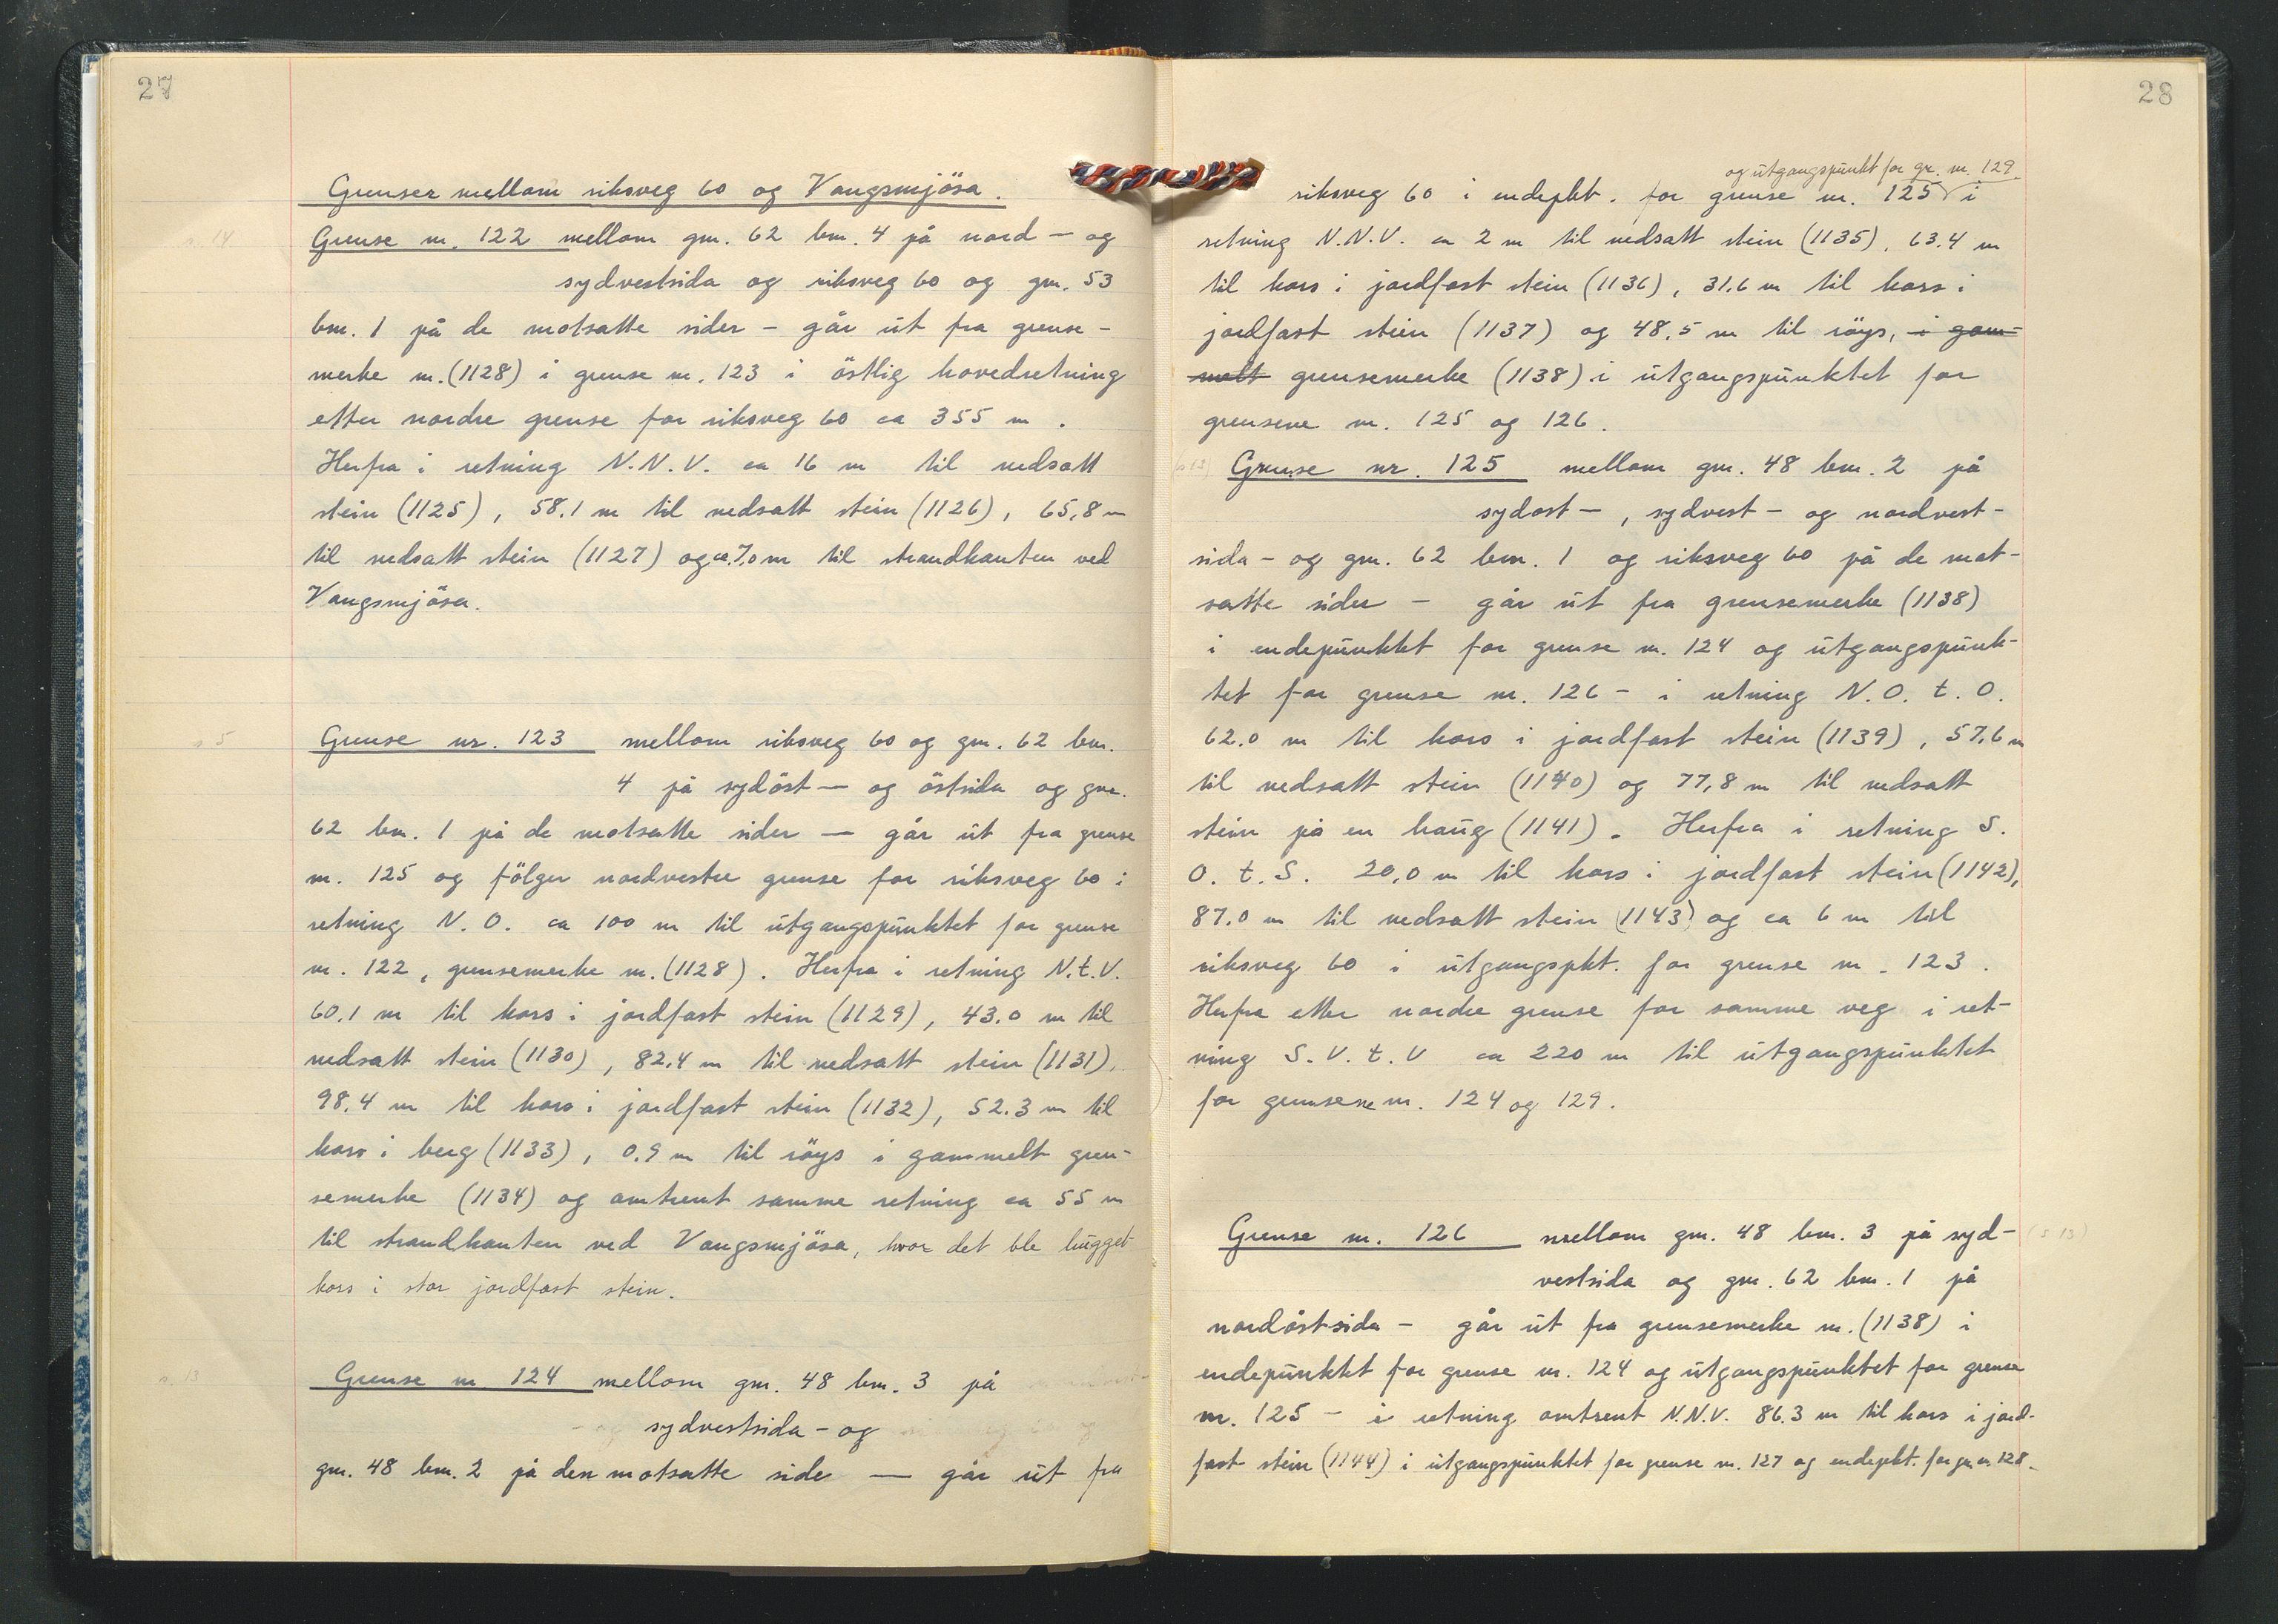 27
Grenser mellom riksveg 60 og Vangsmjösa.
s. 14
Grense nr. 122 mellom gnr. 62 bnr. 4 på nord — og
sydvestsida og riksveg 60 og gnr. 53
bnr. 1 på de motsatte sider – går ut fra grense-
merke nr. (1128) i grense nr. 123 i östlig hovedretning
etter nordre grense for riksveg 60 ca 355 m .
Herfra i retning N.N.V. ca 16 m til nedsatt
stein (1125), 58.1 m til nedsatt stein (1126), 65,8 m
til nedsatt stein (1127) og ca. 7,0 m til strandkanten ved
Vangsmjösa.
s 5
Grense nr. 123 mellom riksveg 60 og gnr. 62 bnr.
4 på sydöst — og östsida og gnr.
62 bnr. 1 på de motsatte sider — går ut fra grense
nr. 125 og fölger nordvestre grense for riksveg 60 i
retning N. O. ca 100 m til utgangspunktet for grense
nr. 122, grensemerke nr. (1128). Herfra i retning N.t.V.
60.1 m til kors i jordfast stein (1129), 43.0 m til
nedsatt stein (1130), 82.4 m til nedsatt stein (1131),
98.4 m til kors i jordfast stein (1132), 52.3 m til
kors i berg (1133), 0.9 m til röys i gammelt gren-
semerke (1134) og omtrent samme retning ca 55 m
til strandkanten ved Vangsmjösa, hvor det ble hugget
kors i stor jordfast stein.
s. 13
Grense nr 124 mellom gnr. 48 bnr. 3 på
sydvestsida – og
gnr. 48 bnr. 2 på den motsatte side — går ut fra
28
og utgangspunkt for gr. nr. 129.
riksveg 60 i endepkt. for grense nr. 125 i
retning N.N.V. ca 2 m til nedsatt stein (1135), 63.4 m
til kors i jordfast stein (1136), 31.6 m til kors i
jordfast stein (1137) og 48.5 m til röys, i gam-
melt grensemerke (1138) i utgangspunktet for
grensene nr. 125 og 126.
(s 13)
Grense nr. 125 mellom gnr. 48 bnr. 2 på
sydost —, sydvest – og nordvest-
sida – og gnr. 62 bnr. 1 og riksveg 60 på de mot-
satte sider — går ut fra grensemerke (1138)
i endepunktet for grense nr. 124 og utgangspunk-
tet for grense nr. 126 – i retning N. O. t. O.
62.0 m til kors i jordfast stein (1139), 57.6 m
til nedsatt stein (1140) og 77,8 m til nedsatt
stein på en haug (1141). Herfra i retning S.
O. t. S. 20,0 m til kors i jordfast stein (1142),
87.0 m til nedsatt stein (1143) og ca 6 m til
riksveg 60 i utgangspkt. for grense nr. 123.
Herfra etter nordre grense for samme veg i ret-
ning S. V. t. V ca 220 m til utgangspunktet
for grensene nr. 124 og 129.
Grense nr. 126 mellom gnr. 48 bnr. 3 på syd-
(s 13)
vestsida og gnr. 62 bnr. 1 på
nordöstsida – går ut fra grensemerke nr. (1138) i
endepunktet for grense nr. 124 og utgangspunktet for grense
nr. 125 – i retning omtrent N.N.V. 86.3 m til kors i jord-
fast stein (1144) i utgangspunktet for grense nr. 127 og endepkt. for gr. nr. 128.